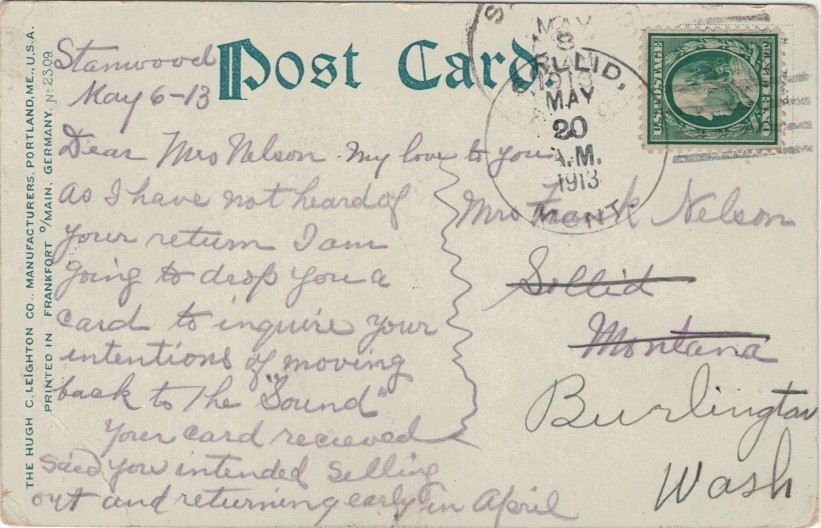 Post Card
THE HUGH C. LEIGHTON CO., MANUFACTURERS, PORTLAND, ME., U.S.A.
PRINTED IN FRANKFORT o/MAIN, GERMANY. No 2309
Stanwood
May 6-13
Dear Mrs Nelson - My love to you
As I have not heard of
your return I am
going to drop you a
card to inquire your
intentions of moving
back to The "Sound"
Your card recieved
said you intended selling
out and returning early in April
MAY
8
1913
SOLLID,
MAY
20
A.M.
1913
MONT.
U.S. POSTAGE
ONE CENT
Mrs Frank Nelson
Sollid
Montana
Burlington
Wash